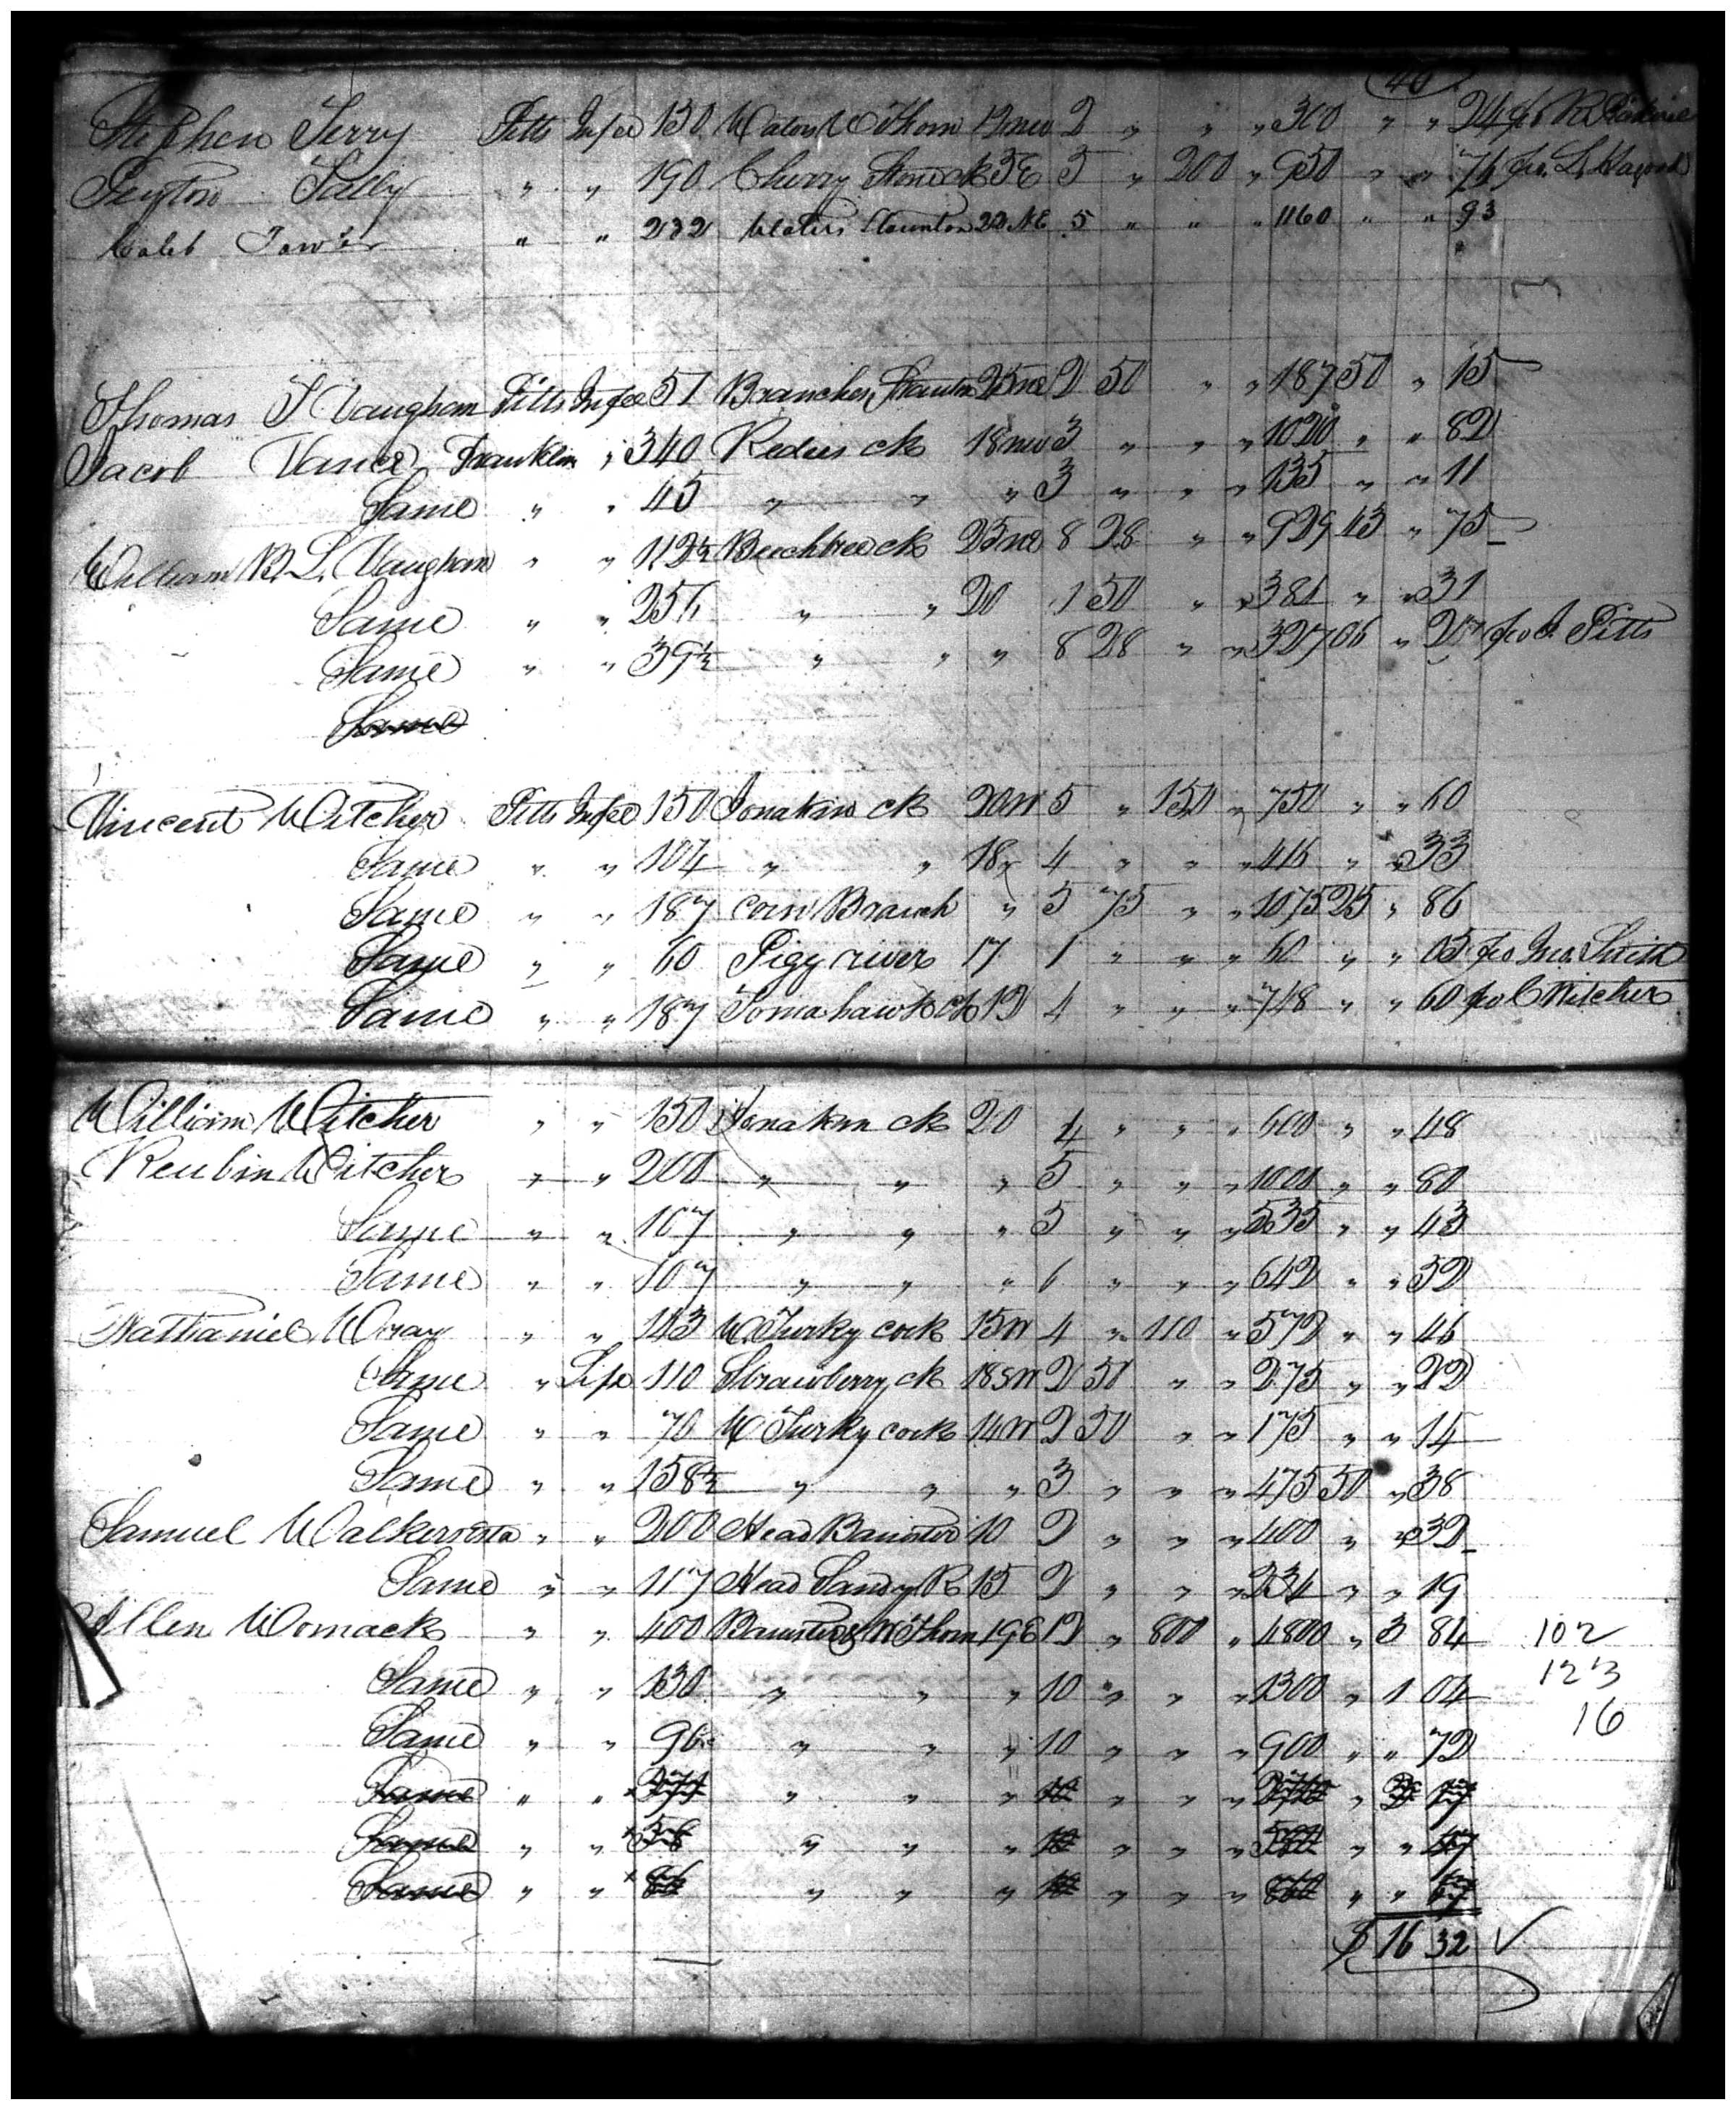 40
Stephen Terry Pitts In fee 130 Waters W Thorn 12 nw 2 " " " 300 " " 24 fro R
Peyton Tally " " 190 Cherry Stone ck 3 E 5 " 200 " 950 " " 76 fro L
Caleb " " 232 Waters Staunton 22 NE 5 " " " 1160 " " 93
Thomas T Vaughan Pitts In fee 51 Branches Staunton 25 ne 2 50 " " 187 50 " 15
Jacob Vance Franklin " 340 Reeduis ck 18 nw 3 " " " 1020 " " 82
Same " " 45 " " " 3 " " " 135 " " 11
William B. L. Vaughan " " 112 1/2 Beechtree ck 25 ne 8 28 " " 929 43 " 75
Same " " 256 " " 20 1 50 " " 381 " " 31
Same " " 39 1/2 " " " 8 28 " " 327 06 " 27 fro J. Pitts
Same
Vincent Witcher Pitts In fee 150 Jonakin ck 20 W 5 " 150 " 750 " " 60
Same " " 104 " " 18 " 4 " " " 416 " " 33
Same " " 187 corn Branch " 5 75 " " 1075 25 " 86
Same " " 60 Pigg river 17 1 " " " 60 " " 05 fro Jno. Smith
Same " " 187 Tomahawk ck 12 4 " " " 748 " " 60 fro C Witcher
William Witcher " " 150 Jonakin ck 20 4 " " " 600 " " 48
Reubin Witcher " " 200 " " " 5 " " " 1000 " " 80
Same " " 107 " " " 5 " " " 535 " " 43
Same " " 107 " " " 6 " " " 642 " " 52
Nathaniel Wray " " 143 W Turkycock 15 W 4 " 110 " 572 " " 46
Same " Life 110 Strawberry ck 18 SW 2 50 " " 275 " " 22
Same " " 70 W Turkycock 14 W 2 50 " " 175 " " 14
Same " " 158 1/2 " " " 3 " " " 475 50 " 38
Samuel Walkers " " 200 Head Banister 10 2 " " " 400 " " 32
Same " " 117 Head Sandy R 15 2 " " " 234 " " 19
Allen Womack " " 400 Banister & W Thorn 19 E 12 " 800 " 4800 " 3 84 102
Same " " 130 " " " 10 " " " 1300 " 1 04 123
Same " " 90 " " " 10 " " " 900 " " 72 16
Same " " " " " " " " "
Same " " 58 " " " " " " " "
Same " " " " " " " " " "
$ 16 32 ✓